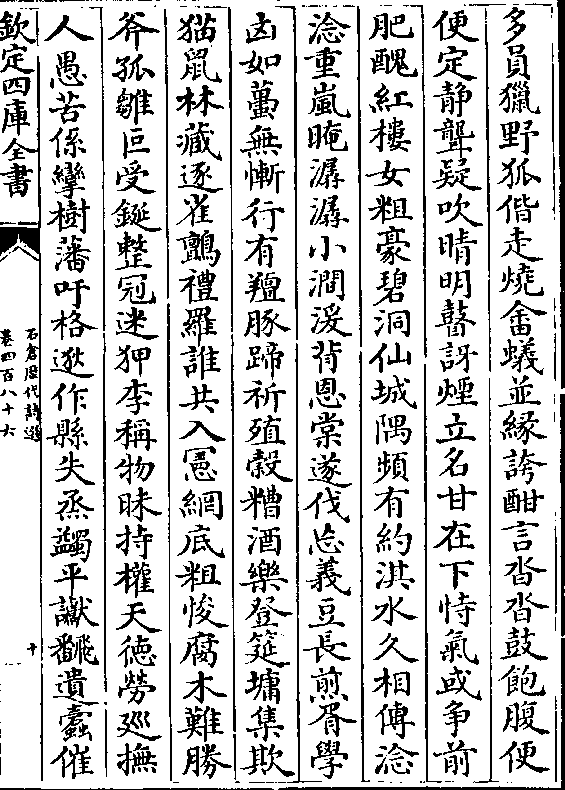 多員獵野狐偕走燒畬蟻並緣誇酣言沓沓鼓飽腹便
便定静聾疑吹晴明瞽訝煙立名甘在下恃氣或争前
肥醜紅樓女粗豪碧洞仙城隅頻有約淇水久相傳淰
淰重嵐晻潺潺小澗湲背恩棠遂伐忘義豆長煎胥學
凶如蠆無慚行有羶豚蹄祈殖穀糟酒樂登筵墉集欺
猫鼠林藏逐雀鸇禮羅誰共入憲網底粗悛腐木難勝
斧孤雛叵受鋋整冠迷狎李稱物昧持權天徳勞廵撫
人愚苦係攣樹藩吁格逖作縣失烝蠲平讞飜遺蠧催
欽定四庫全書
石倉歷代詩選
卷四百八十六
十